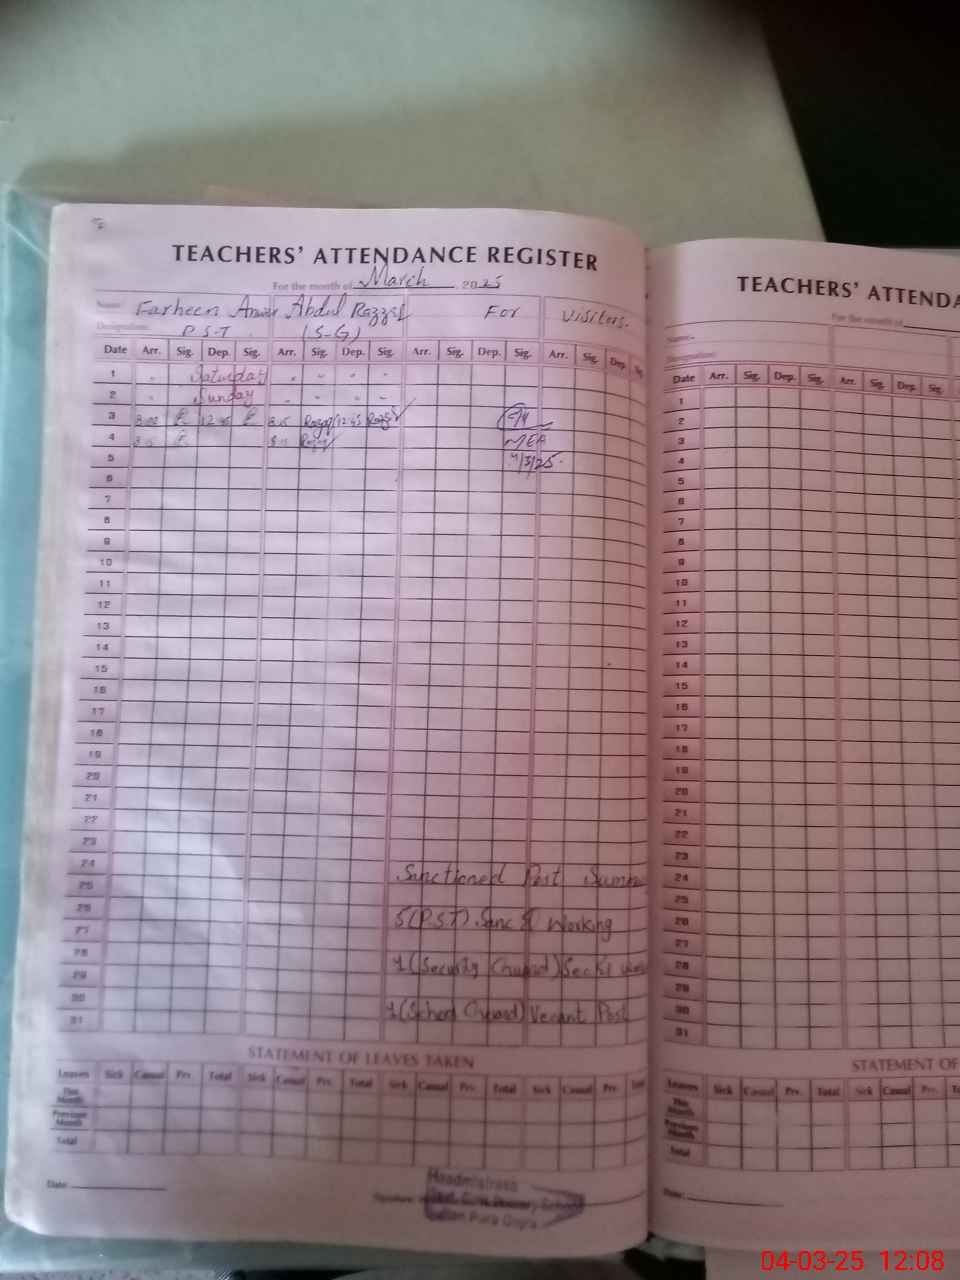 TEACHERS' ATTENDANCE REGISTER
For the month of March 2025
Name: Farheen Anwar Abdul Razzaq For Visitors.
Designation: P.S.T (S-G)
Date Arr. Sig. Dep. Sig. Arr. Sig. Dep. Sig. Arr. Sig. Dep. Sig. Arr. Sig. Dep. Sig.
1 Saturday
2 Sunday
3 8:00 12:45 8:15 Razzaq 12:45 Razzaq
4 8:15 8:15 Razzaq MEA
5 4/3/25.
6
7
8
9
10
11
12
13
14
15
16
17
18
19
20
21
22
23
24 Sanctioned Post
25
26 5 (P.S.T) Sanc Working
27
28 1 (Security Guard)
29
30 1 (School Guard) Vecant Post
31
STATEMENT OF LEAVES TAKEN
Leaves Sick Casual Prv. Total Sick Casual Prv. Total Sick Casual Prv. Total Sick Casual Prv.
This Month
Previous Month
Total
Date:
Signature:
Headmistress
Govt. Girls Primary School
Pura
TEACHERS' ATTENDA
For the month of
Name:
Designation:
Date Arr. Sig. Dep. Sig. Arr. Sig. Dep. Sig.
1
2
3
4
5
6
7
8
9
10
11
12
13
14
15
16
17
18
19
20
21
22
23
24
25
26
27
28
29
30
31
STATEMENT OF
Leaves Sick Casual Prv. Total Sick Casual Prv.
This Month
Previous Month
Total
Date:
04-03-25 12:08